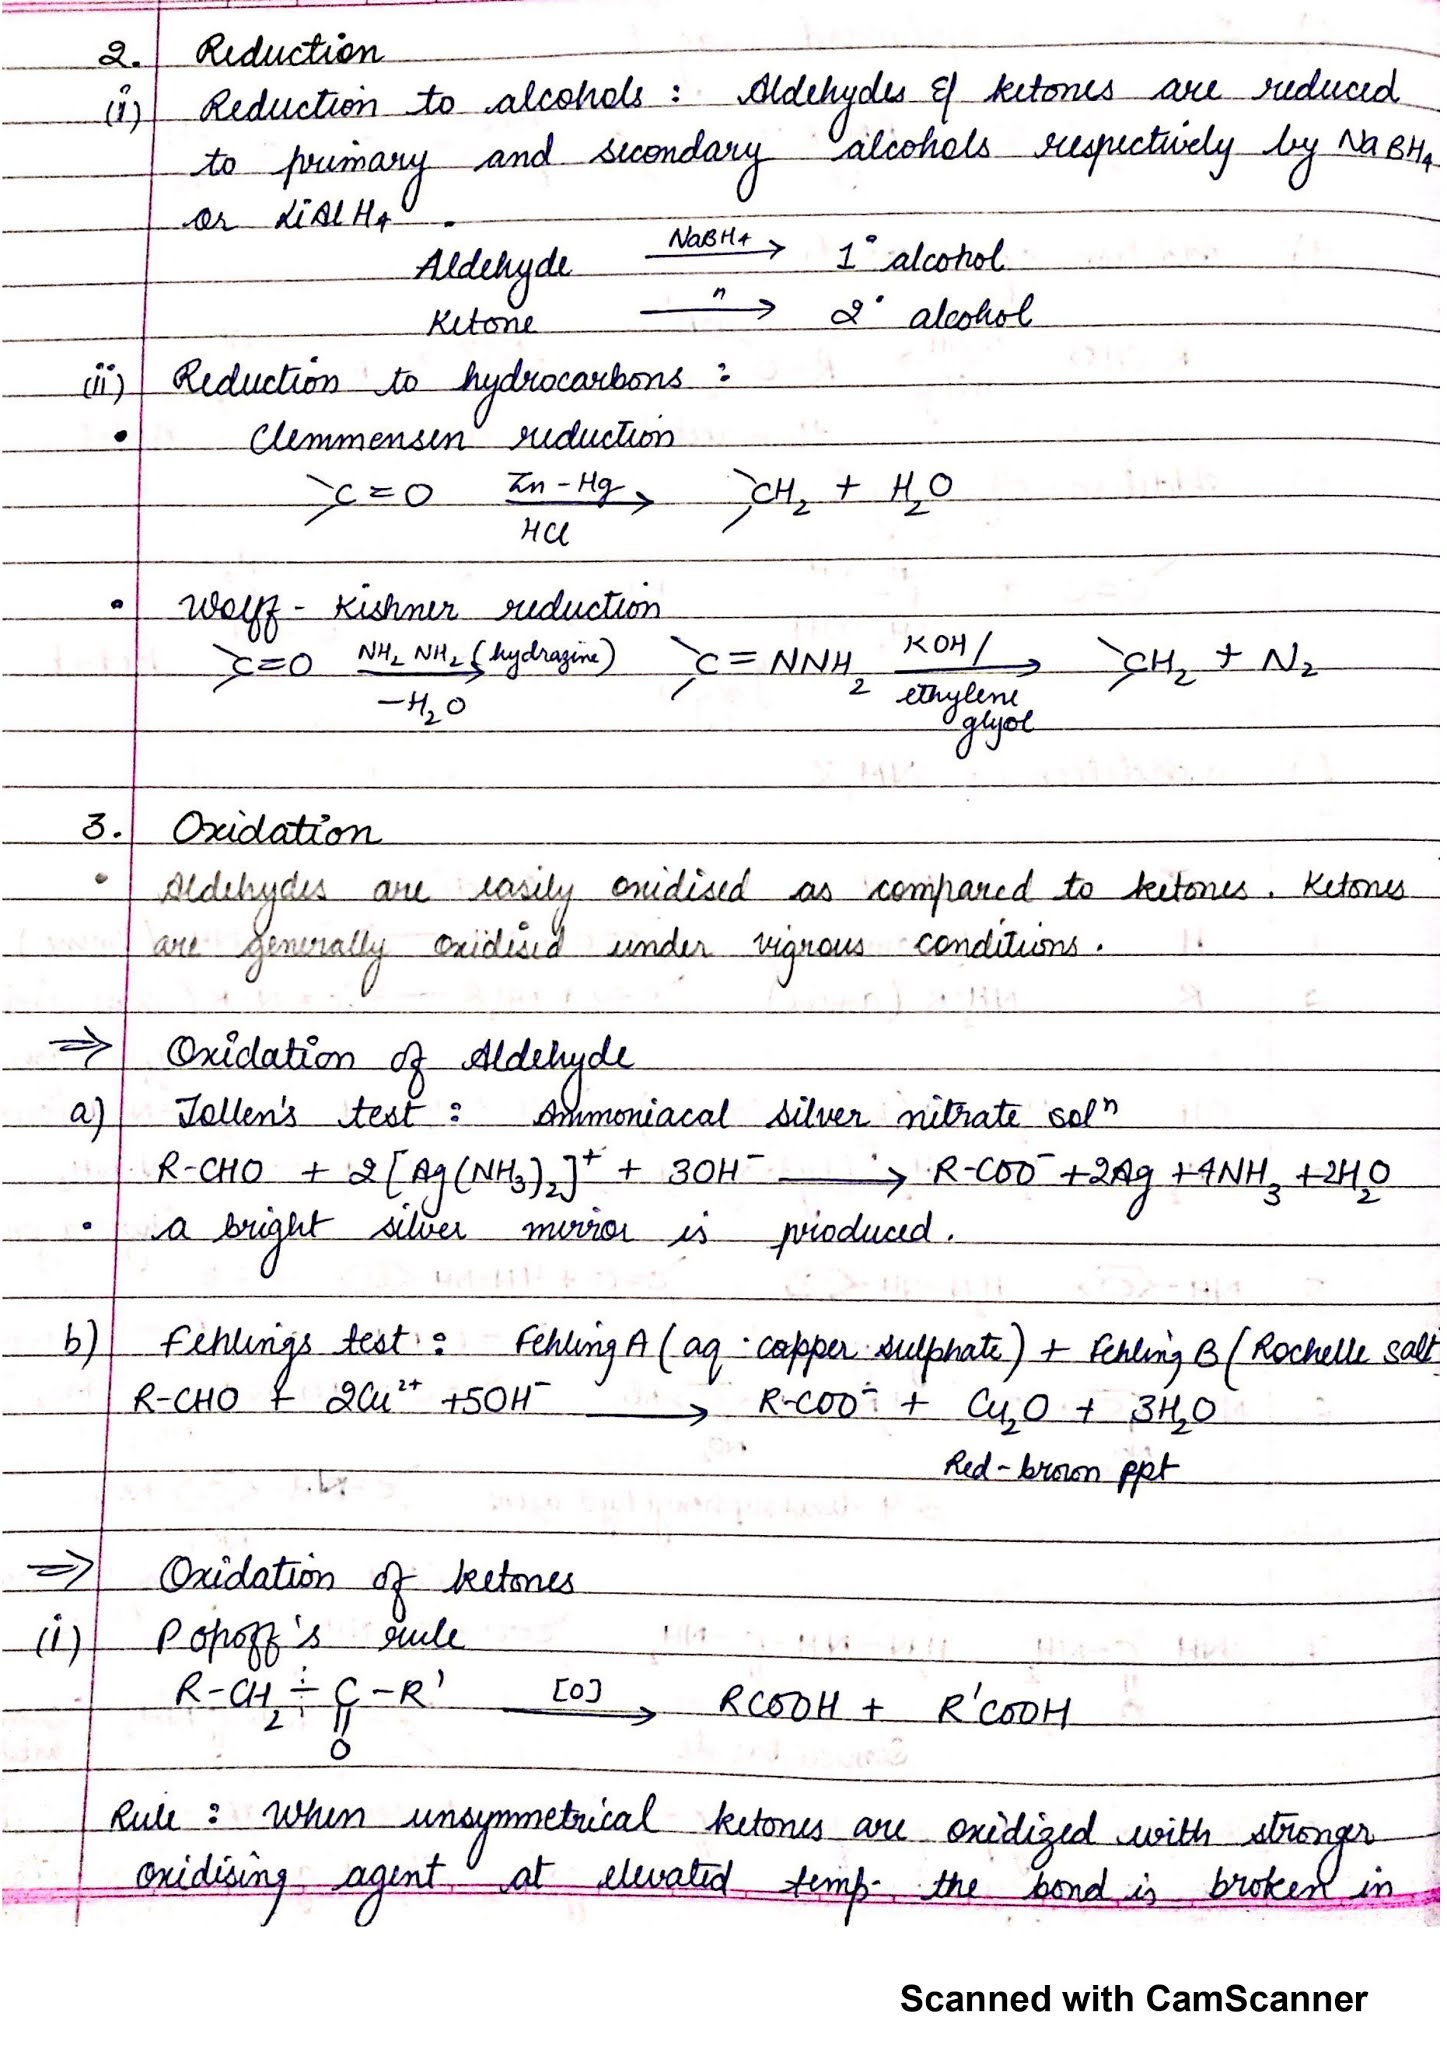 2. Reduction
(i) Reduction to alcohols : Aldehydes & ketones are reduced
to primary and secondary alcohols respectively by NaBH4
or LiAlH4 .
Aldehyde NaBH4 → 1° alcohol
Ketone " → 2° alcohol
(ii) Reduction to hydrocarbons :
• Clemmensen reduction
>C=O Zn-Hg → HCl >CH2 + H2O
• Wolff-Kishner reduction
>C=O NH2NH2 (hydrazine) → -H2O >C=NNH2 KOH/ → ethylene glyol >CH2 + N2
3. Oxidation
• Aldehydes are easily oxidised as compared to ketones. Ketones
are generally oxidised under vigrous conditions.
⇒ Oxidation of Aldehyde
a) Tollen's test : Ammoniacal silver nitrate solⁿ
R-CHO + 2[Ag(NH3)2]+ + 3OH- → R-COO- + 2Ag + 4NH3 + 2H2O
• a bright silver mirror is produced.
b) Fehlings test : Fehling A (aq. copper sulphate) + Fehling B (Rochelle salt
R-CHO + 2Cu2+ + 5OH- → R-COO- + Cu2O + 3H2O
Red-brown ppt
⇒ Oxidation of ketones
(i) Popoff's rule
R-CH2-C-R' [O] → RCOOH + R'COOH
||
O
Rule : When unsymmetrical ketones are oxidized with stronger
oxidising agent at elevated temp. the bond is broken in
Scanned with CamScanner